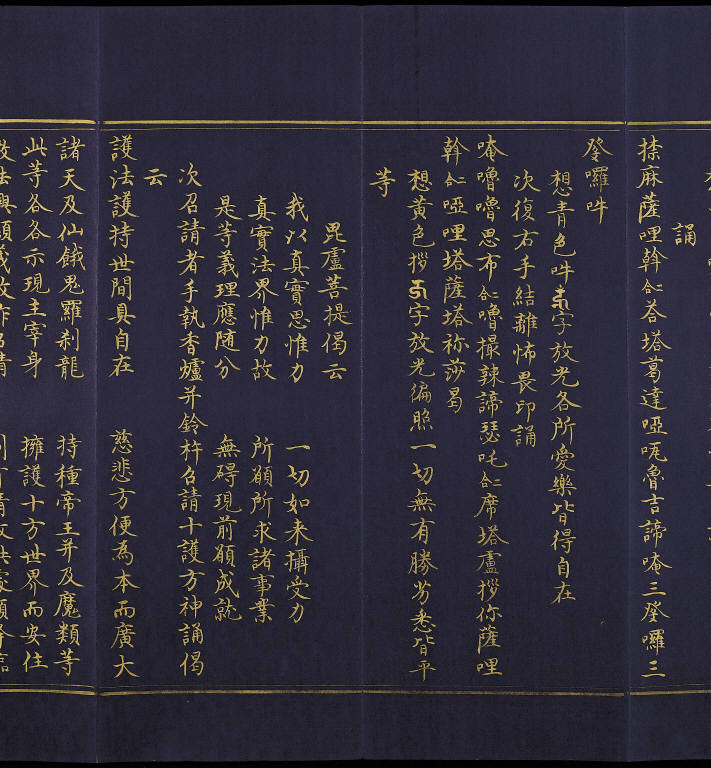 誦
捺麻薩哩斡仁荅塔葛達啞唲魯吉諦唵三癹囉三
癹囉吽
想青色吽字放光各所愛樂皆得自在
次復右手結離怖畏印誦
唵嚕嚕思布仁嚕撮辣諦瑟吒仁席塔盧拶你薩哩
斡仁啞哩塔薩塔祢莎曷
想黃色拶字放光徧照一切無有勝劣悉皆平
等
毘盧菩提偈云
我以真實思惟力 一切如来攝受力
真實法界惟力故 所願所求諸事業
是等義理應随分 無碍現前願成就
次召請者手執香爐并鈴杵召請十護方神誦偈
云
護法護持世間真自在 慈悲方便為本而廣大
諸天及仙餓鬼羅刹龍 持種帝王并及魔類等
此等各各示現主宰身 擁護十方世界而安住